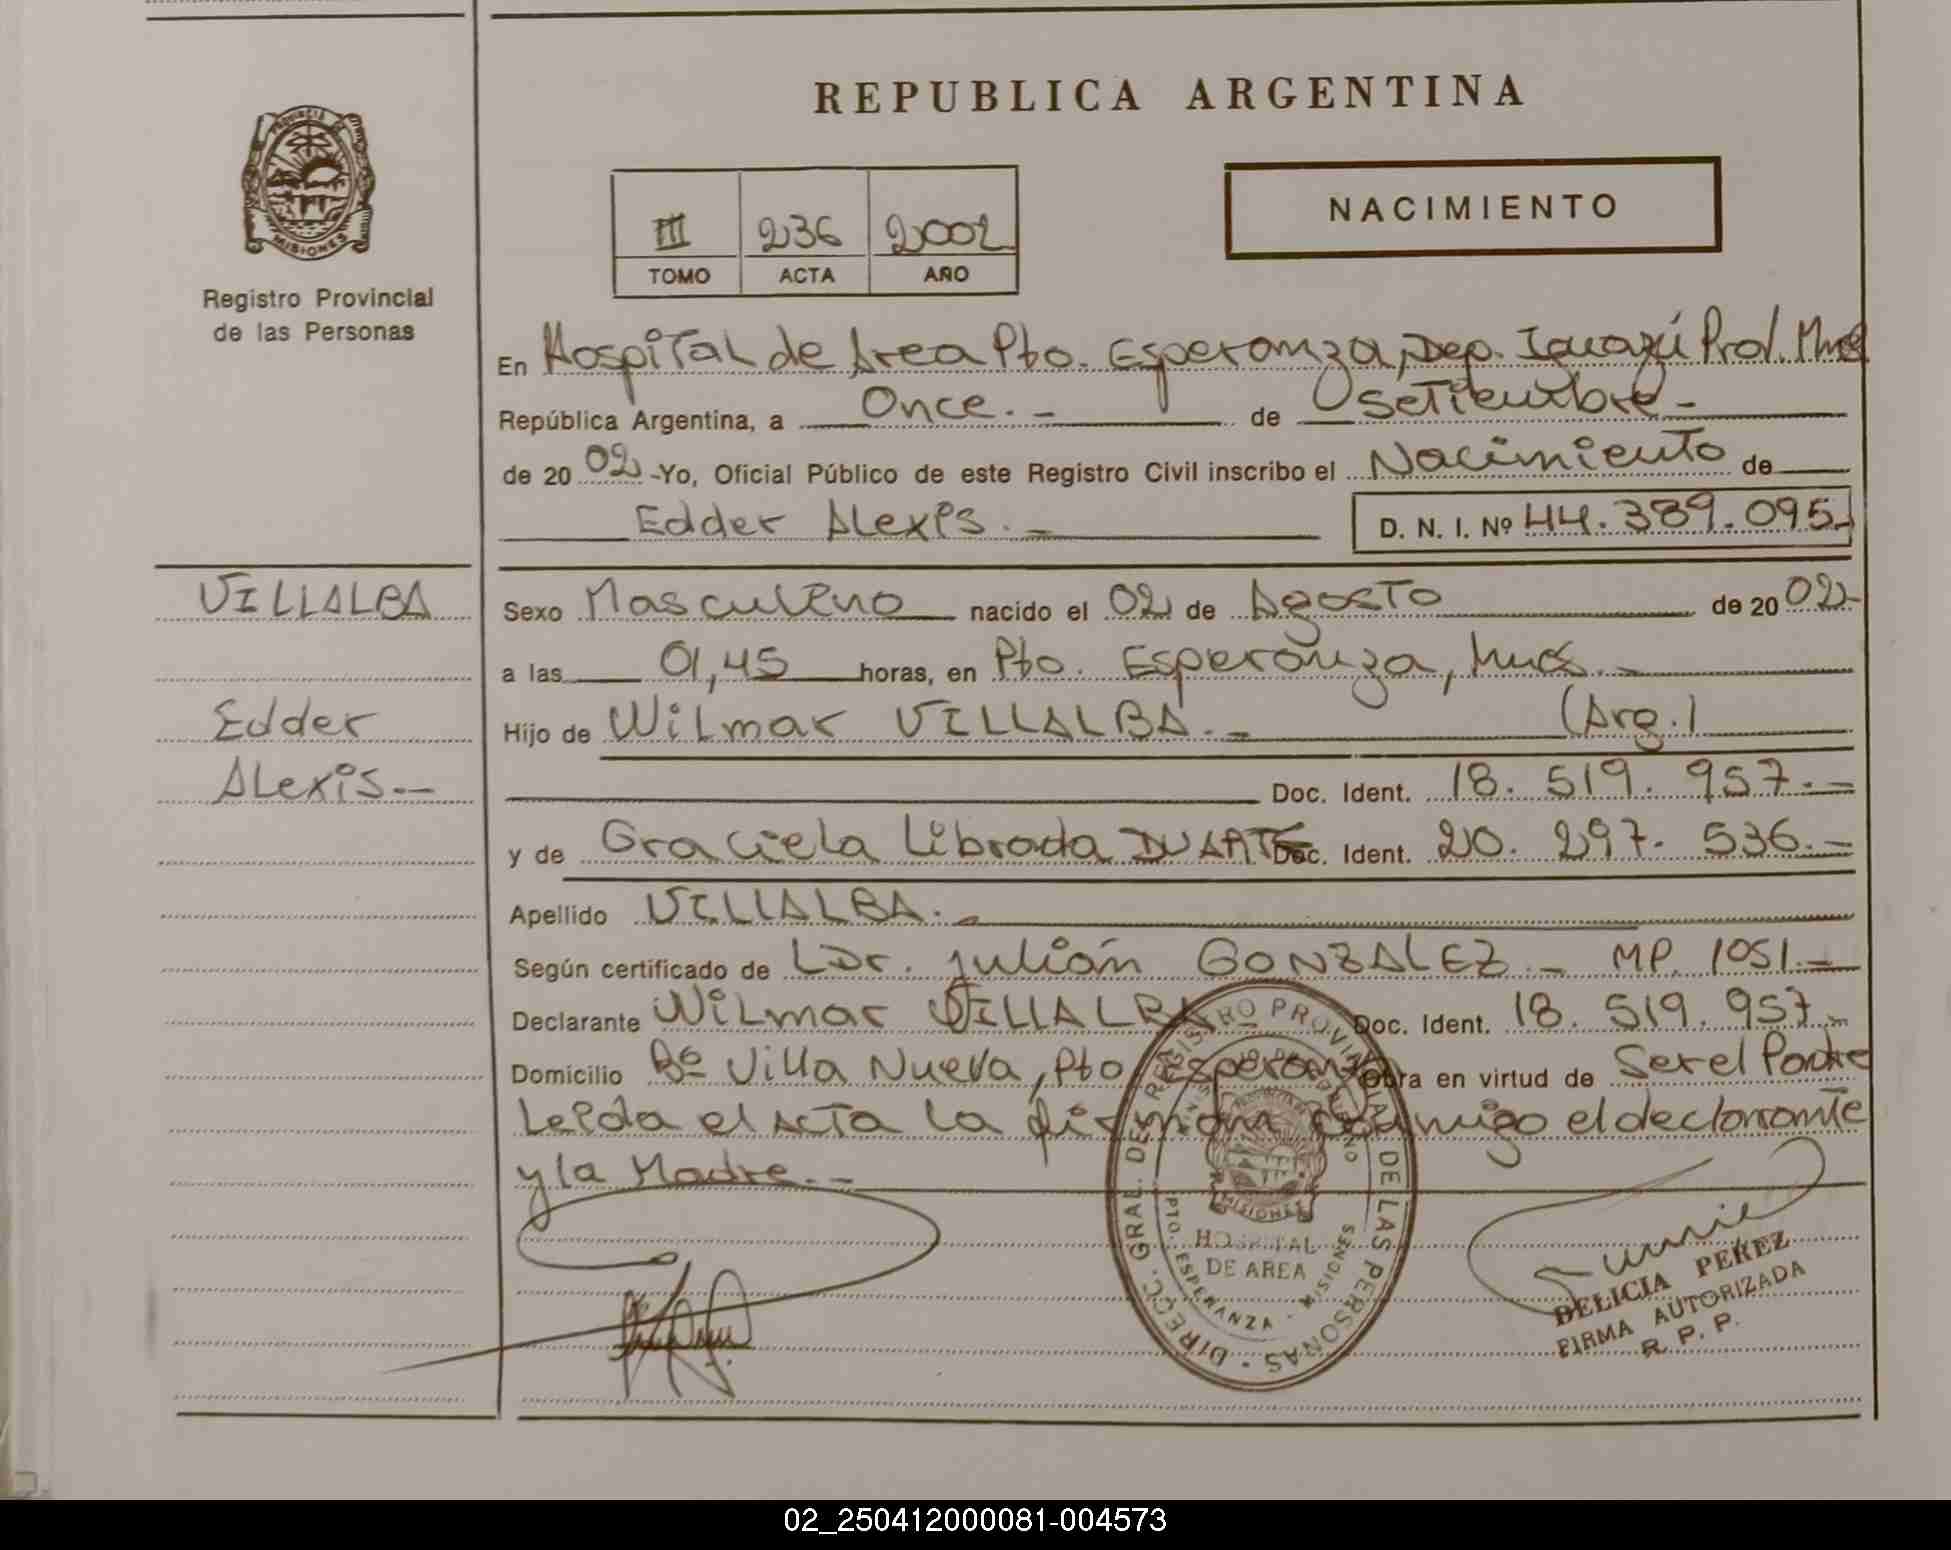 REPUBLICA ARGENTINA
PROVINCIA DE
MISIONES
Registro Provincial
de las Personas
III 236 2002
TOMO ACTA AÑO
NACIMIENTO
En Hospital de Area Pto. Esperanza, Dep. Iguazú Prov. Mnes
República Argentina, a Once.- de Setiembre-
de 2002 -Yo, Oficial Público de este Registro Civil inscribo el Nacimiento de
Edder Alexis.- D. N. I. Nº 44.389.095-
VILLALBA
Edder
Alexis.-
Sexo Masculino nacido el 02 de Agosto de 2002-
a las 01,45 horas, en Pto. Esperanza, Mnes.-
Hijo de Wilmar VILLALBA.- (Arg.)
Doc. Ident. 18. 519. 957.-
y de Graciela Librada DUARTE Doc. Ident. 20. 297. 536.-
Apellido VILLALBA.-
Según certificado de Dr. Julián GONZALEZ.- MP. 1051.-
Declarante Wilmar VILLALBA.- Doc. Ident. 18. 519. 957.-
Domicilio Bº Villa Nueva, Pto. Esperanza Obra en virtud de Ser el Padre
Leída el Acta la firman conmigo el declarante
y la Madre.-
DIRECC. GRAL. DEL REGISTRO PROVINCIAL DE LAS PERSONAS
MISIONES
HOSPITAL
DE AREA
PTO. ESPERANZA - MISIONES
DELICIA PEREZ
FIRMA AUTORIZADA
R. P. P.
02_250412000081-004573